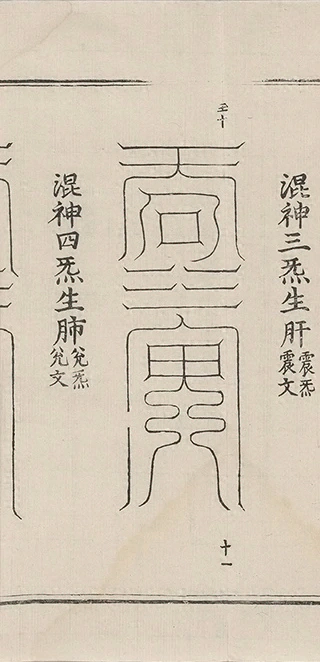 混神三炁生肝震炁震文
五十
十一
混神四炁生肺兌炁兌文